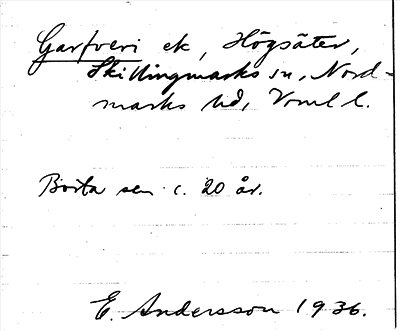 Garfveri ek, Högsäter,
Skillingmarks sn, Nord-
marks hd, Vrml l.
Borta sen c. 20 år.
E. Andersson 1936.